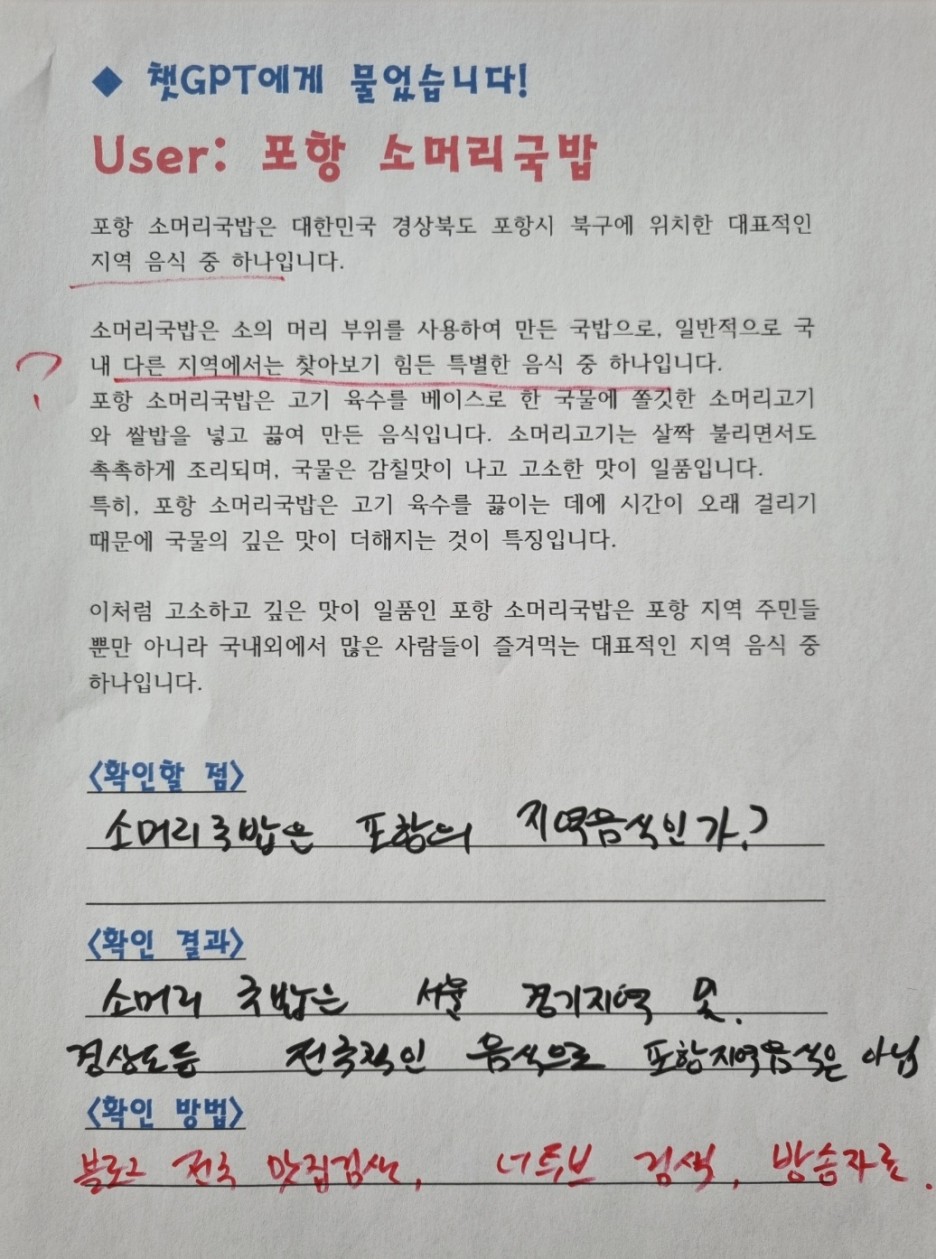 ◆ 챗GPT에게 물었습니다!
User: 포항 소머리국밥
포항 소머리국밥은 대한민국 경상북도 포항시 북구에 위치한 대표적인
지역 음식 중 하나입니다.
소머리국밥은 소의 머리 부위를 사용하여 만든 국밥으로, 일반적으로 국
내 다른 지역에서는 찾아보기 힘든 특별한 음식 중 하나입니다.
?
포항 소머리국밥은 고기 육수를 베이스로 한 국물에 쫄깃한 소머리고기
와 쌀밥을 넣고 끓여 만든 음식입니다. 소머리고기는 살짝 불리면서도
촉촉하게 조리되며, 국물은 감칠맛이 나고 고소한 맛이 일품입니다.
특히, 포항 소머리국밥은 고기 육수를 끓이는 데에 시간이 오래 걸리기
때문에 국물의 깊은 맛이 더해지는 것이 특징입니다.
이처럼 고소하고 깊은 맛이 일품인 포항 소머리국밥은 포항 지역 주민들
뿐만 아니라 국내외에서 많은 사람들이 즐겨먹는 대표적인 지역 음식 중
하나입니다.
<확인할 점>
소머리국밥은 포항의 지역음식인가?
<확인 결과>
소머리 국밥은 서울 경기지역 및.
경상도등 전국적인 음식으로 포항지역음식은 아님
<확인 방법>
블로그 전국 맛집검색, 너튜브 검색, 방송자료.